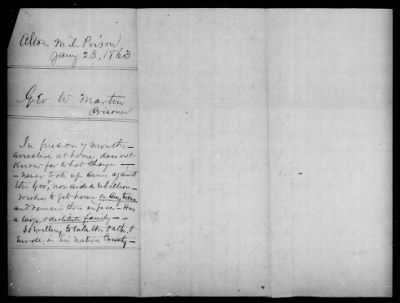 Alton Mil. Prison
Jany 23, 1863
Geo W. Martin
Prisoner
In prison 7 months –
arrested at home, does not
know for what charge
– never took up arms against
the Gov, nor aided rebellion –
wishes to get home
and remain there in peace – Has
a large & destitute family – 
Is willing to take the oath, &
enroll in his native County –